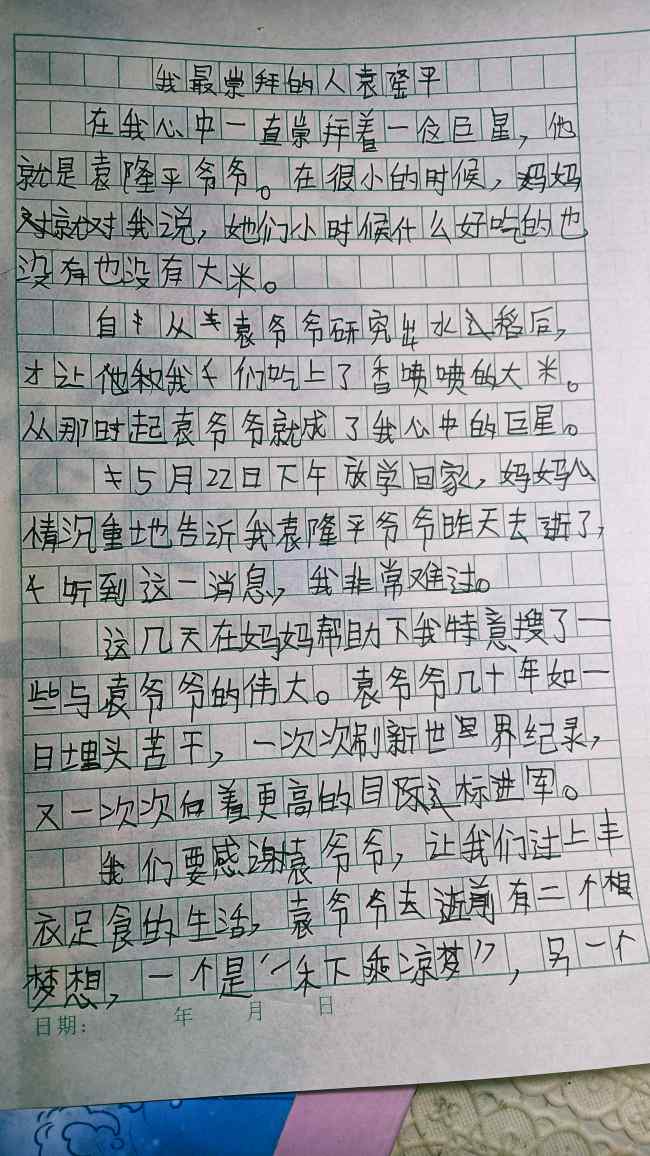 我最崇拜的人袁隆平
在我心中一直崇拜着一位巨星，他
就是袁隆平爷爷。在很小的时候，妈妈
就对我说，她们小时候什么好吃的也
没有也没有大米。
自从袁爷爷研究出水稻后，
才让他和我们吃上了香喷喷的大米。
从那时起袁爷爷就成了我心中的巨星。
5月22日下午放学回家，妈妈心
情沉重地告诉我袁隆平爷爷昨天去逝了，
听到这一消息，我非常难过。
这几天在妈妈帮助下我特意搜了一
些与袁爷爷的伟大。袁爷爷几十年如一
日埋头苦干，一次次刷新世界纪录，
又一次次向着更高的目标进军。
我们要感谢袁爷爷，让我们过上丰
衣足食的生活，袁爷爷去逝前有二个
梦想，一个是“禾下乘凉梦”，另一个
日期： 年 月 日